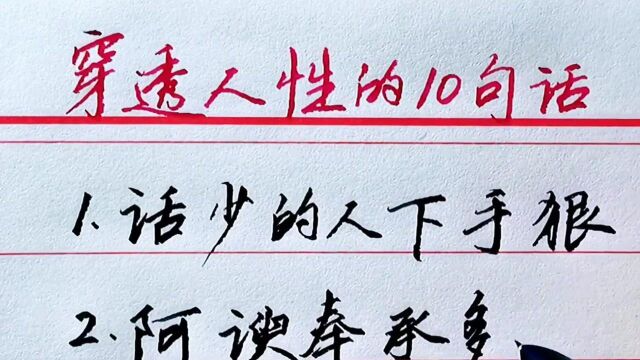 穿透人性的10句话
1.话少的人下手狠
2.阿谀奉承多